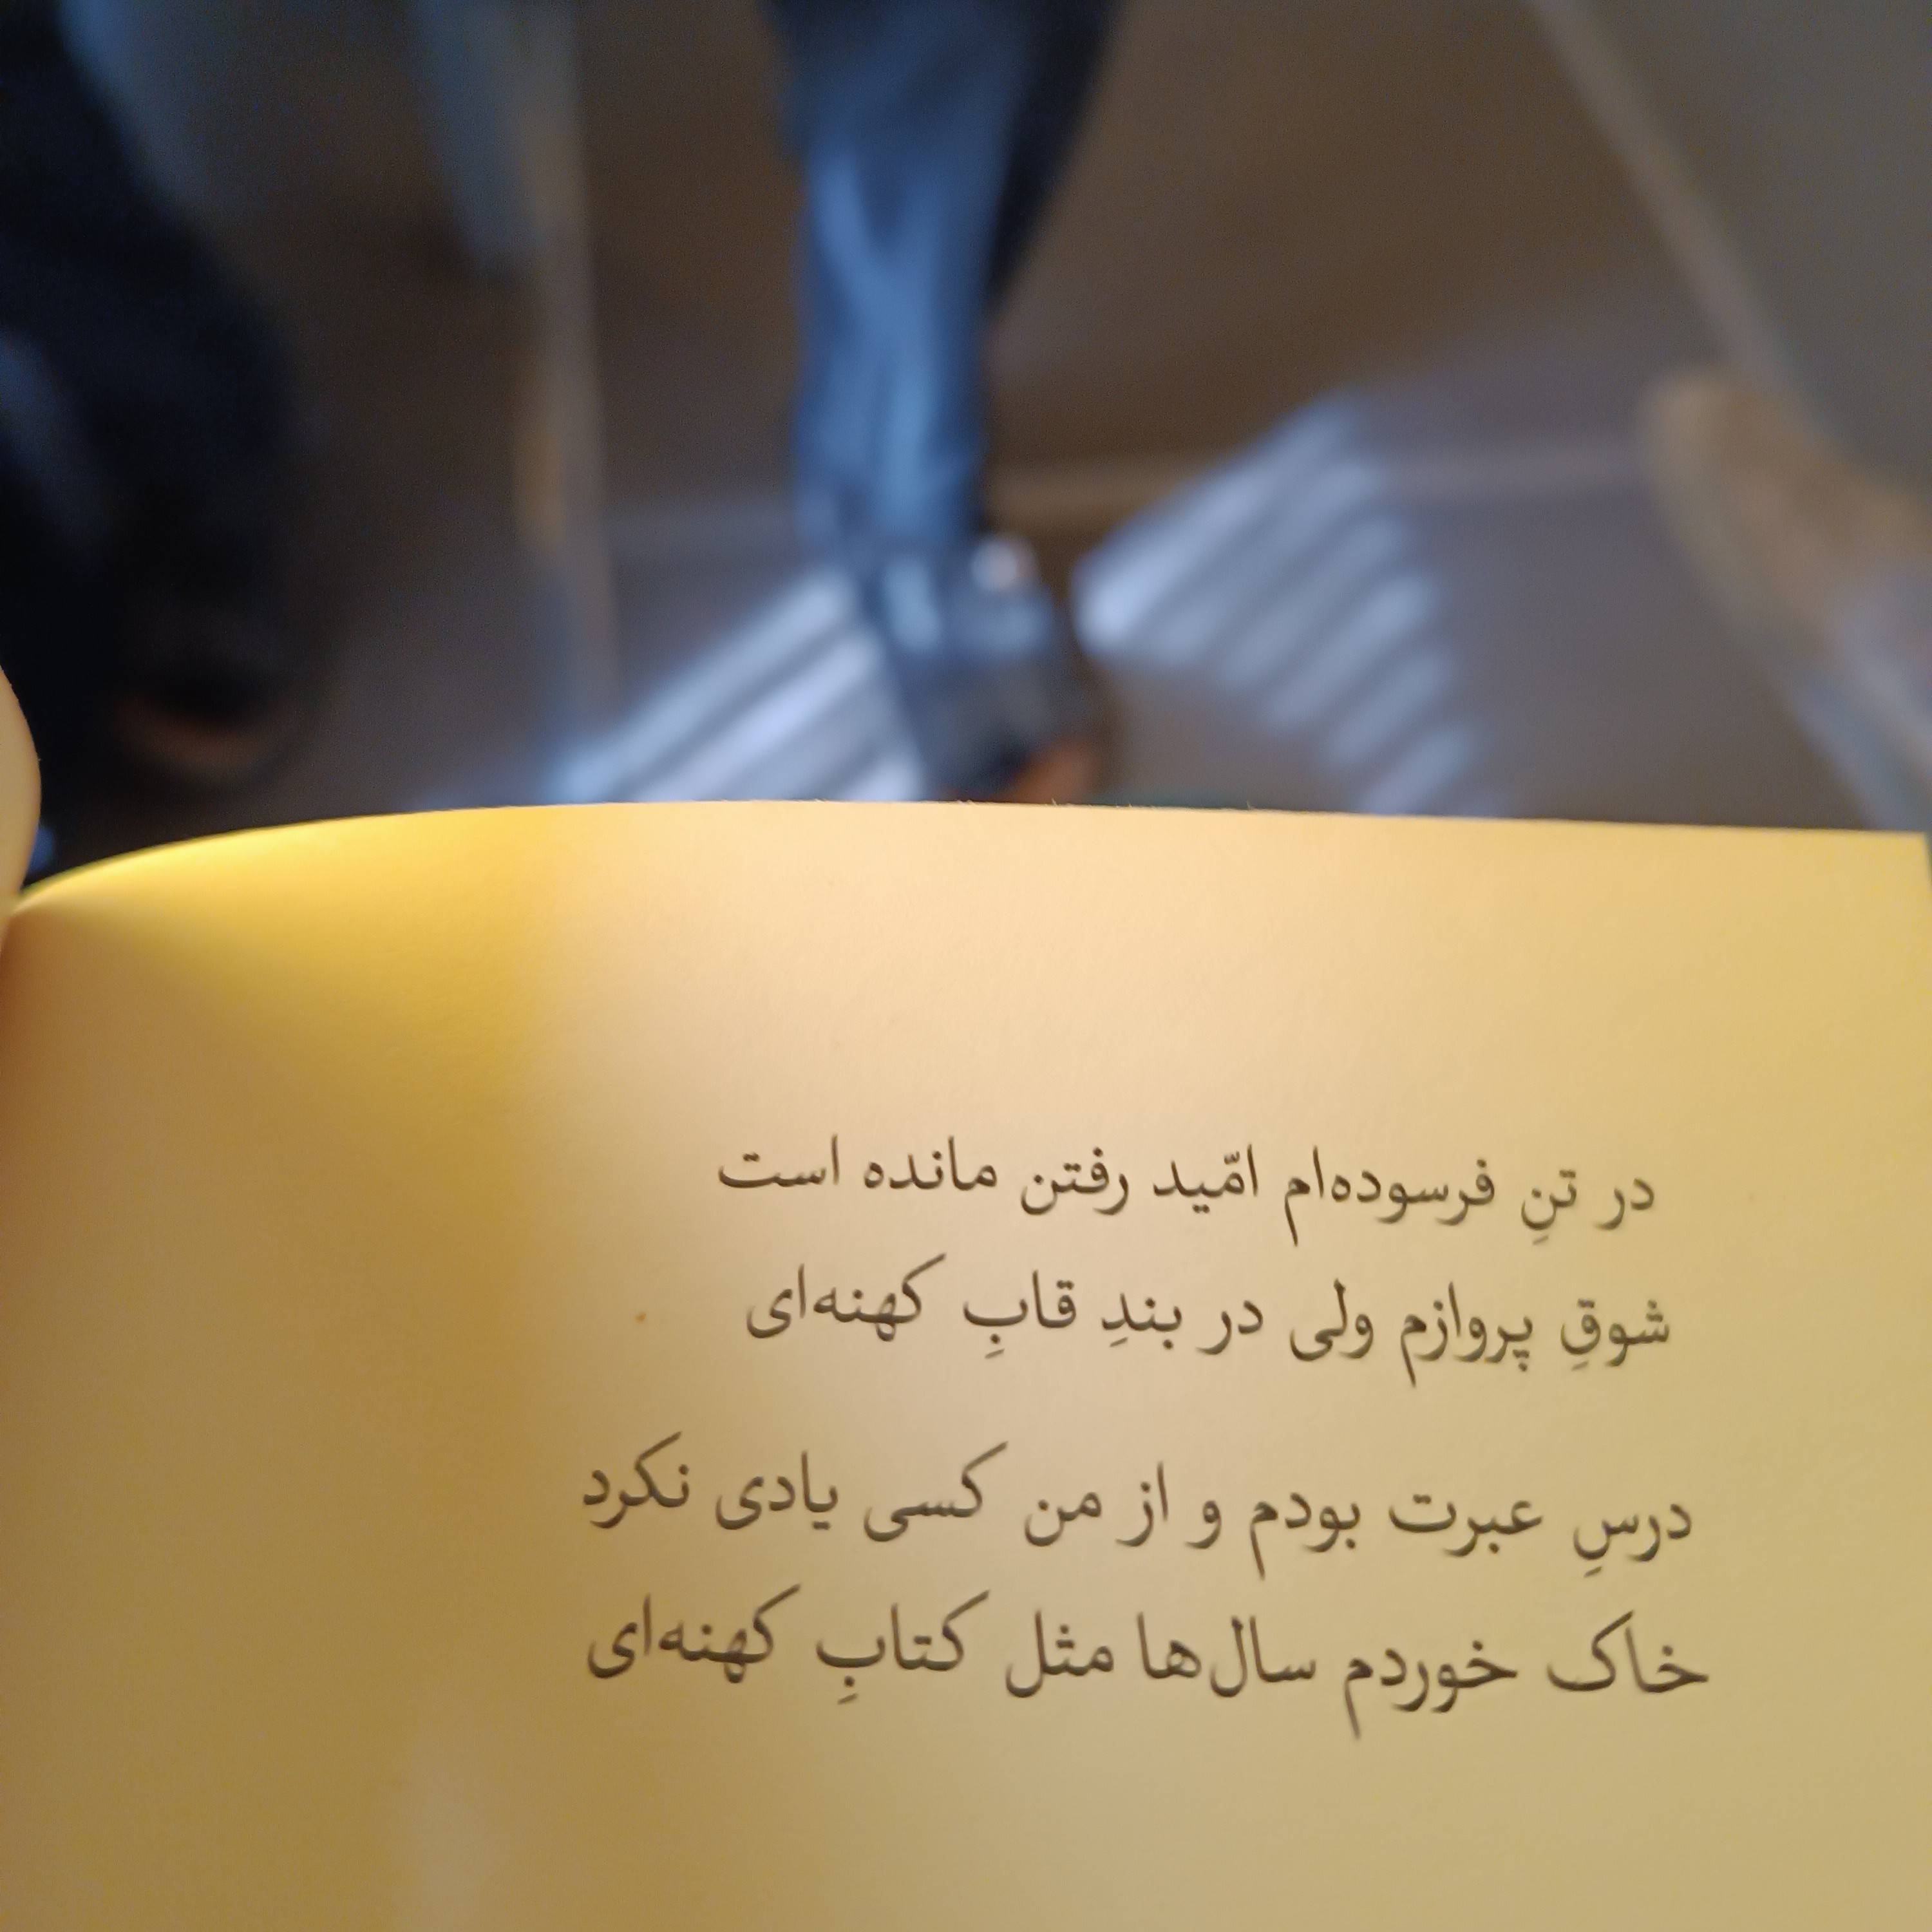 در تنِ فرسوده‌ام امّید رفتن مانده است
شوقِ پروازم ولی در بندِ قابِ کهنه‌ای
درسِ عبرت بودم و از من کسی یادی نکرد
خاک خوردم سال‌ها مثل کتابِ کهنه‌ای